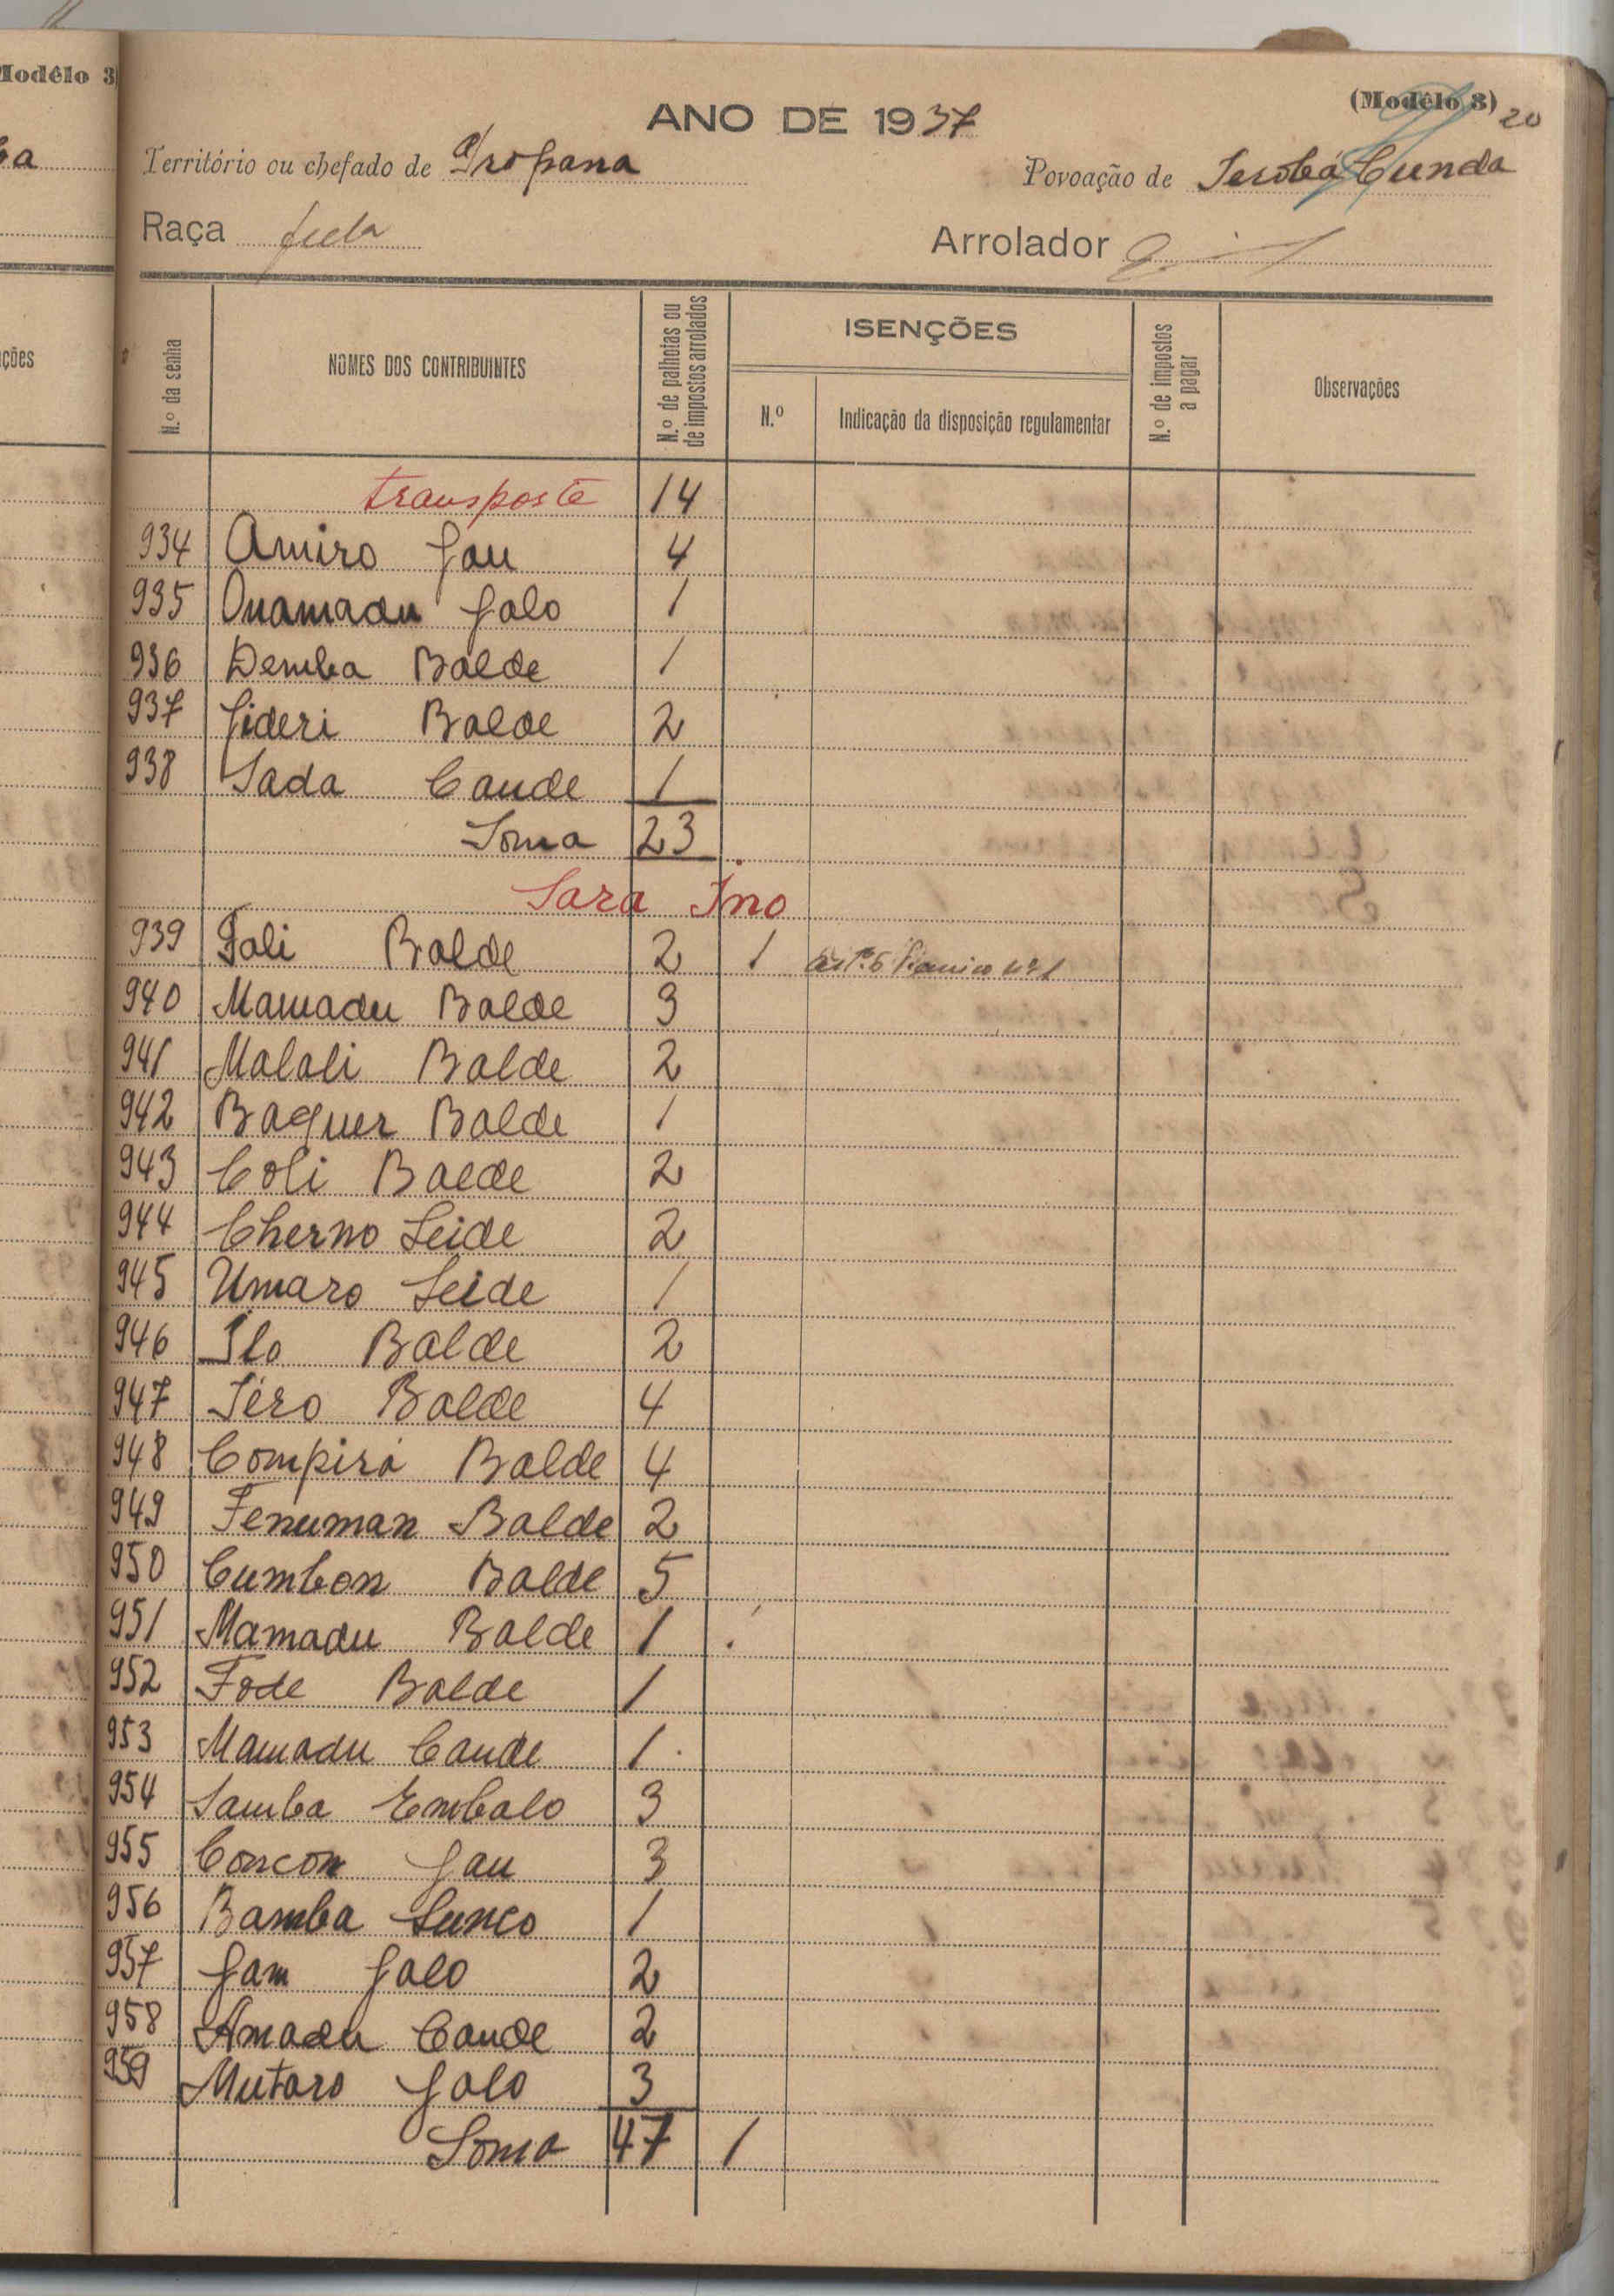 Modêlo 3
ba
ções
(Modêlo 3) 20
ANO DE 1937
Território ou chefado de Propana
Povoação de Serobá Cunda
Raça fula
Arrolador
N.º da senha
NOMES DOS CONTRIBUINTES
N.º de palhotas ou de impostos arrolados
ISENÇÕES
N.º
Indicação da disposição regulamentar
N.º de impostos a pagar
Observações
transporte 14
934 Amiro Jau 4
935 Ouamadu Jalo 1
936 Demba Balde 1
937 Jideri Balde 2
938 Sada Cande 1
Soma 23
Sara Ino
939 Fali Balde 2 1 Artº. 6 § unico nº 1
940 Mamadu Balde 3
941 Malali Balde 2
942 Baquer Balde 1
943 Coli Balde 2
944 Cherno Seide 2
945 Umaro Seide 1
946 Ilo Balde 2
947 Séro Balde 4
948 Compirá Balde 4
949 Fenuman Balde 2
950 Cumbon Balde 5
951 Mamadu Balde 1
952 Fode Balde 1
953 Mamadu Cande 1
954 Samba Embalo 3
955 Concon Jau 3
956 Bamba Sunco 1
957 Jam Jalo 2
958 Amadu Cande 2
959 Mutaro Jalo 3
Soma 47 1